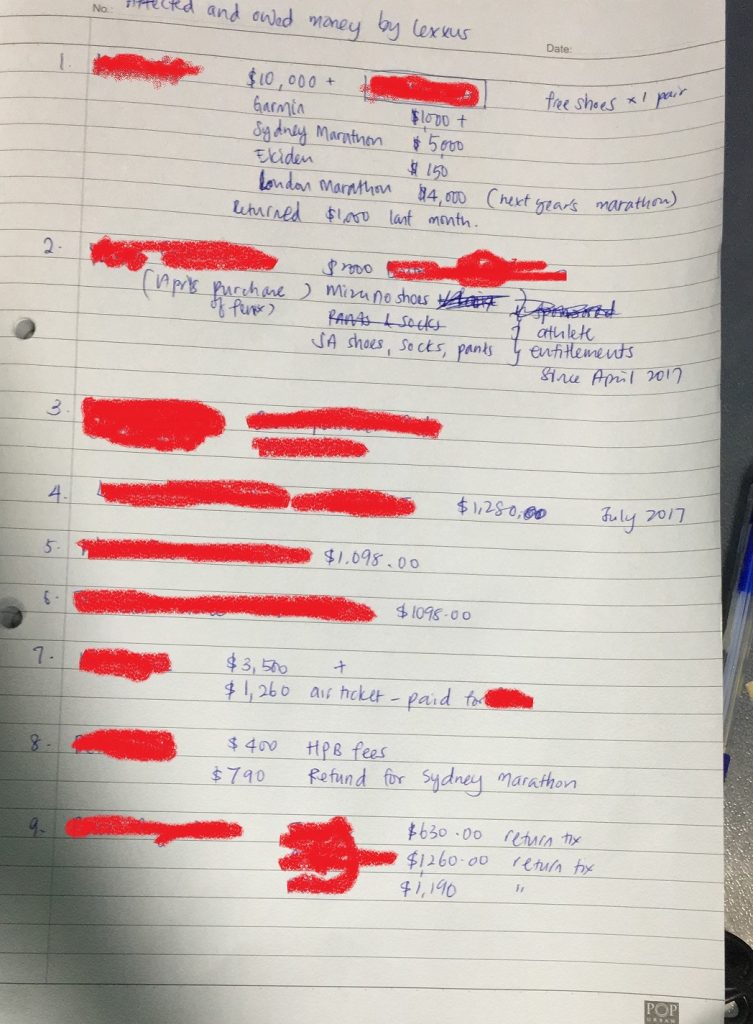 No.: Affected and owed money by lexxus
Date:
1. $10,000 + free shoes x 1 pair
Garmin $1000 +
Sydney Marathon $5000
Ekiden $150
London Marathon $4,000 (next year's marathon)
Returned $1,000 last month.
2. $2000
(April's purchase of) Mizuno shoes
pants & socks athlete
SA shoes, socks, pants entitlements
Since April 2017
3.
4. $1,280.00 July 2017
5. $1.098.00
6. $1098.00
7. $3,500 +
$1,260 air ticket - paid for
8. $400 HPB fees
$790 Refund for Sydney marathon
9. $630.00 return tix
$1260.00 return tix
$1,190 "
POP
URBAN